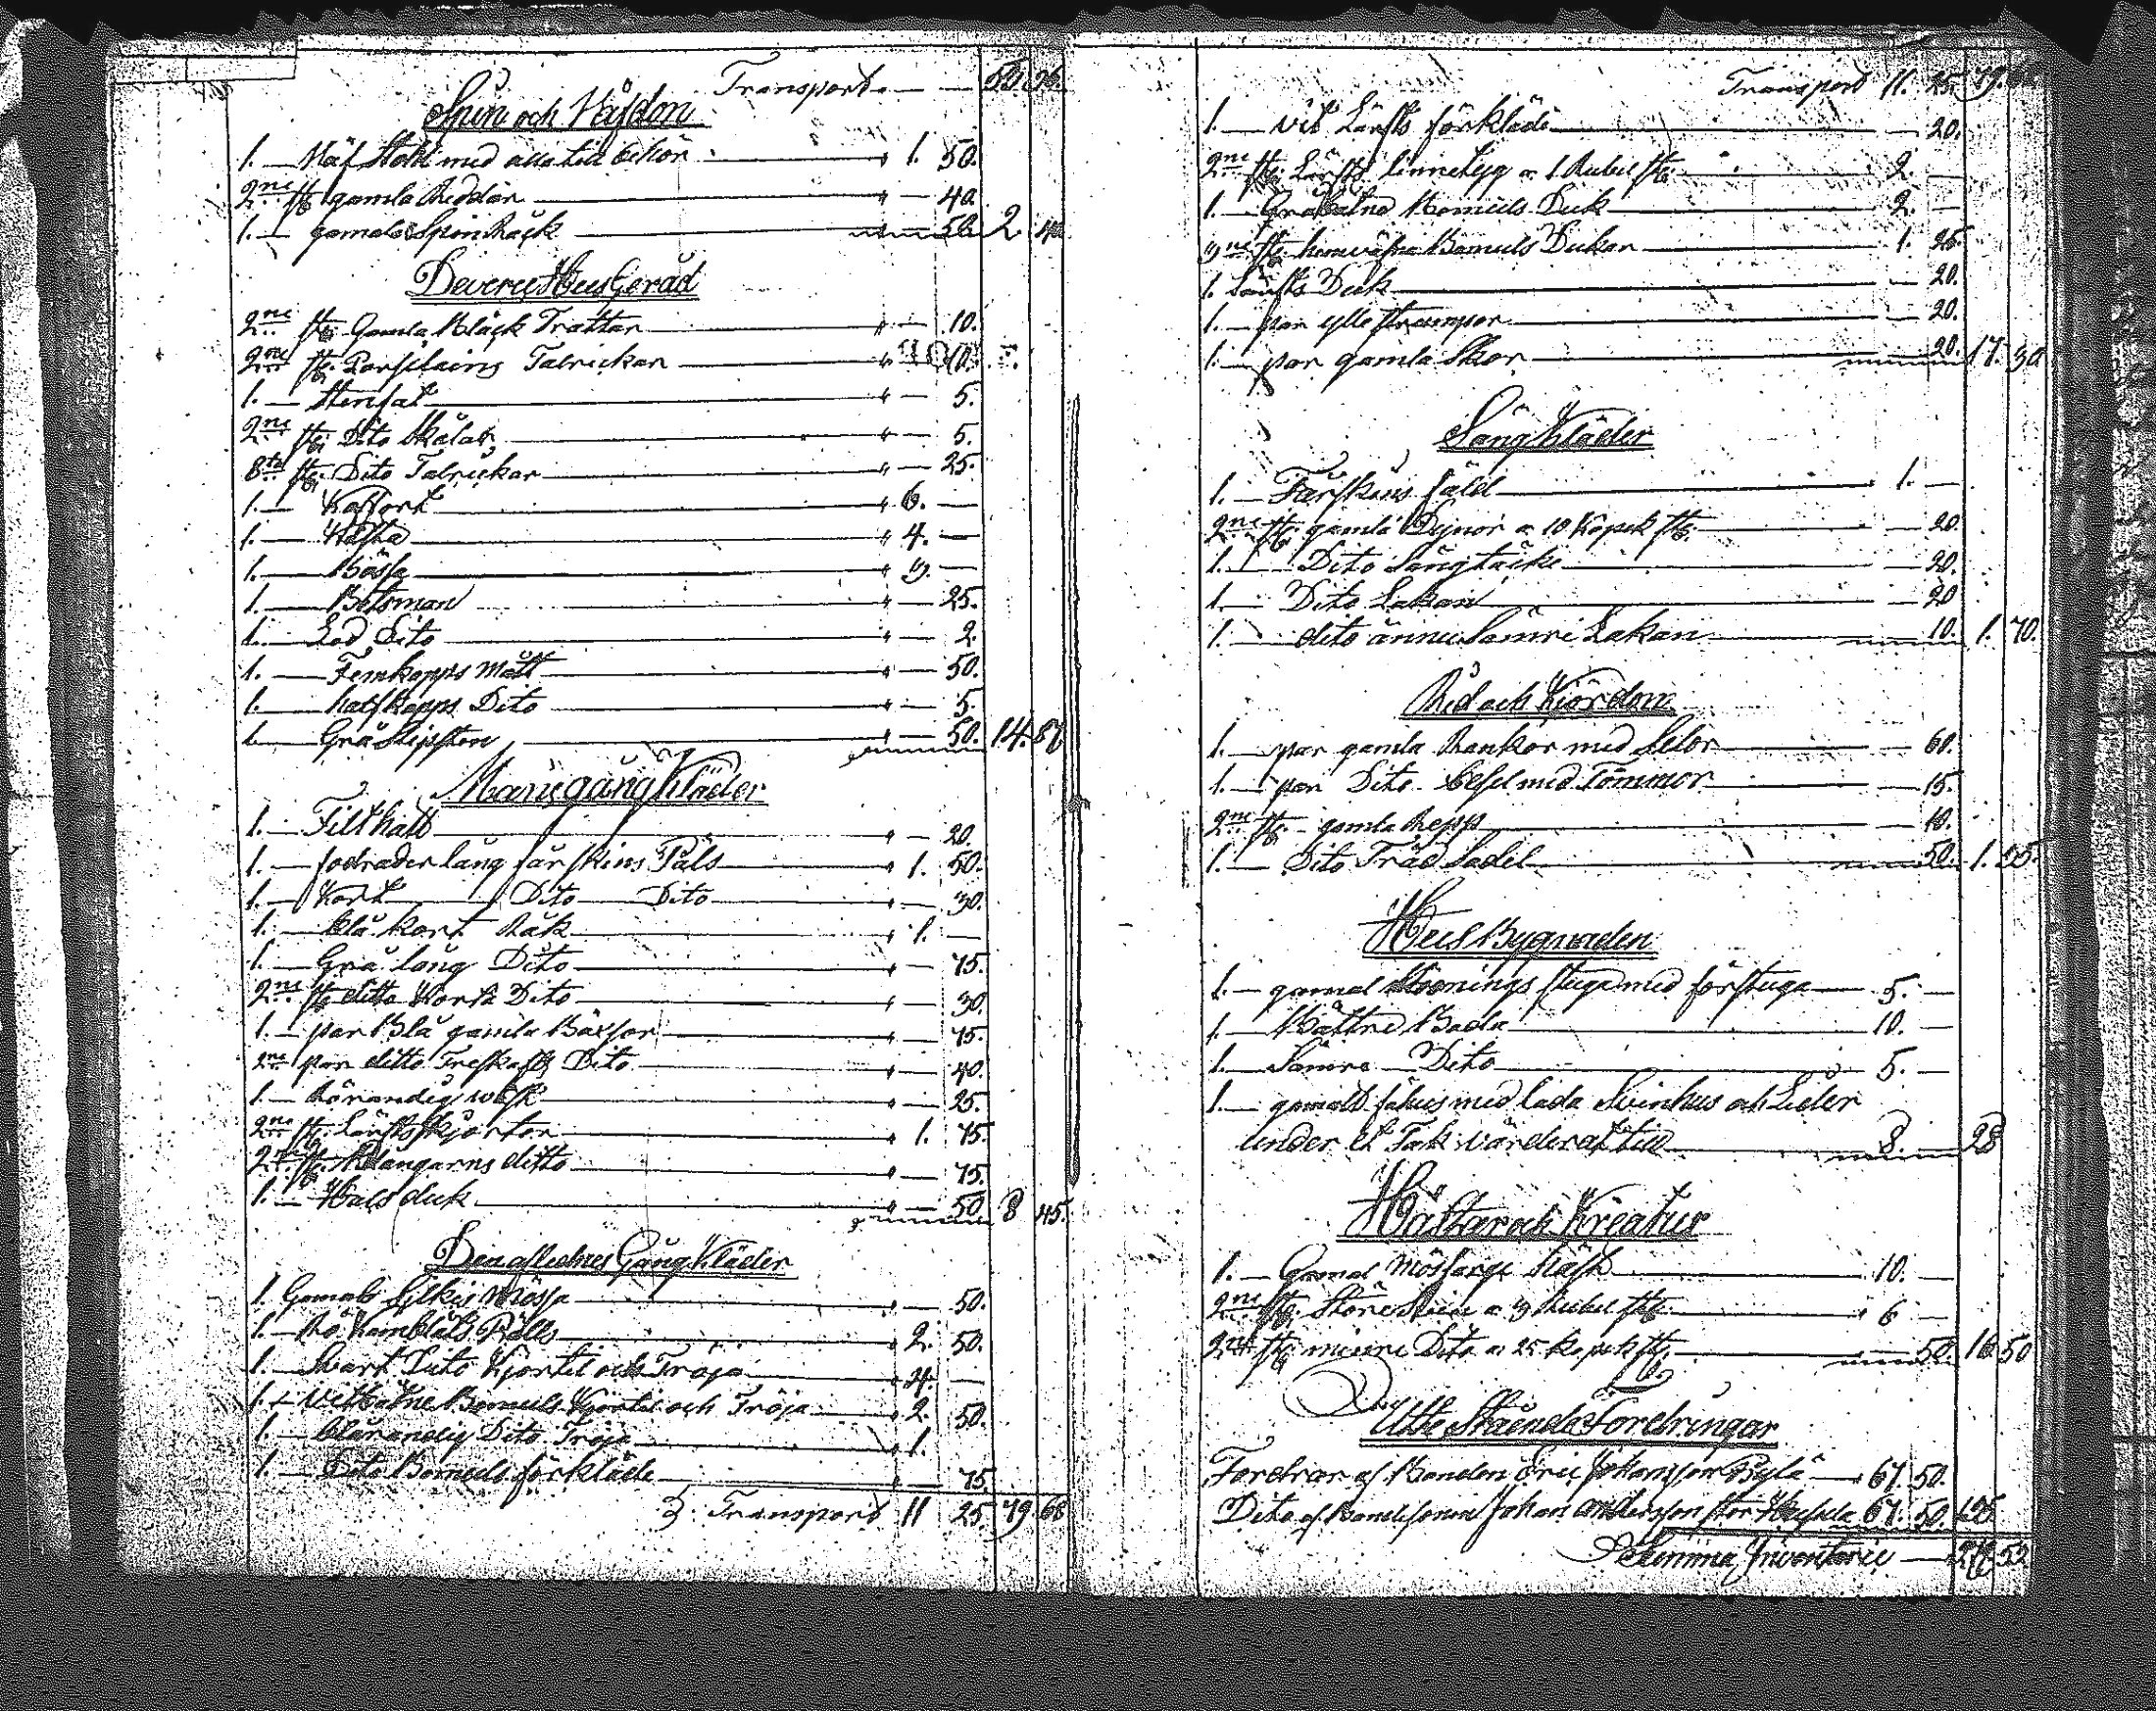 Transport 53. 96.
Spin och Väfdon
1. Väf Stohl med alla till behör " 1. 50.
2ne st: gamla Reddor " — 40.
1. gamal Spin Råck " — 50. 2. 40
Deverse Hus Geråd
2ne st: Gamla Bläck Trattar " — 10.
2ne st: Porslains Talrickar " — 10.
1. Stenfat " — 5.
2ne st: Dito Skålar " — 5.
8ta st: Dito Talrickar " — 25.
1. Koffort " 6. —
1. Kista " 4. —
1. Bössa " 3. —
1. Betsman " — 25.
1. Lod Dito " — 2.
1. Femkapps Mått " — 50.
1. half kapps Dito " — 5.
1. Grå Slipsten " — 50. 14. 87
Mans gång Kläder
1. Filthatt " — 20.
1. fodrader lång fårskins Päls " 1. 50.
1. Kort Dito Dito " — 30.
1. blå kort Råk " 1. —
1. Grå lång Dito " — 75.
2ne st ditto Korta Dito " — 30.
1. par Blå gamla Bäxsor " — 75.
2ne par ditto Treskafts Dito " — 40.
1. Rörandig west " — 25.
2ne st: Lärfts Skjortor " 1. 75.
2ne st: Blångarns ditto " — 75.
1. Halsduk " — 50. 8 45.
Den aflednes Gång Kläder
1. Gamals Silkes Mössa " — 50.
1. Rö Kamblåts Rålls " 2. 50.
1. Svart Dito Kjortel och Tröja " 4. —
1. Bomuls Kjortel och Tröja " 2. 50.
1. blårandig Dito Tröja " 1.
1. Dito Bomuls förkläde " — 75.
3. Transport 11 25. 79 68
Transport 11. 25. 79.
1. vit Lärfts förkläde — 20.
2ne st: Lärfts linnetyg a 1 Rubel st: 2. —
1. Bomuls Duk 2. —
st: hemväfna Bomuls Dukar 1. 25.
1. Lärfts Duk — 20.
1. par ylle strumpor — 20.
1. par gamla Skor — 20. 17. 30
Säng Kläder
1. Fårskins fäld 1. —
2ne st: gamla Dynor a 10 Kopek st: — 20
1. Dito Sängtäcke — 20.
1. Dito Lakan — 20
1. dito ännu Sämre Lakan — 10. 1. 70.
Rid och Kjördom
1. par gamla Rankor med Selor — 60.
1. par Dito betsel med Tömmor — 15.
2ne st: gamla Repp — 10.
1. Dito Träd Sadel — 50. 1. 35.
Hus Bygnaden
1. gamal Boenings stuga med förstuga 5. —
1. Bättre Boda 10. —
1. Sämre Dito 5. —
1. gamalt fähus med lada Svinhus och Lider
under et Tak värderat till 8. — 28
Hästar och Kreatur
1. Gamal Häst 10. —
2ne st: Store Svin a 3 Rubel st: 6 —
2ne st: minre Dito a 25 kopek st: — 50. 16 50
Utbe Stående Fordringar
Fordran af Bonden Eric Johansson 67. 50.
Dito af Bondesonen Johan Andersson 67. 50. 135
Summa Inventarie 52